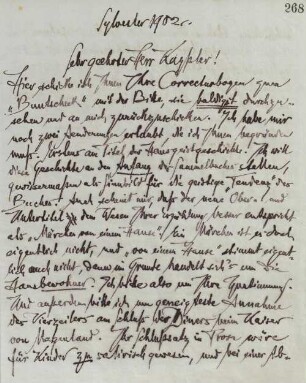 268
Sylvester 1902.
Sehr geehrter Herr Kayssler!
Hier schicke ich Ihnen Ihre Correcturbogen zum
„Buntscheck" mit der Bitte, sie baldigst durchzu-
sehen und an mich zurückzuschicken. Ich habe mir
noch zwei Aenderungen erlaubt, die ich Ihnen begründen
muß. Erstens am Titel der Hausgeistgeschichte! Ich will
diese Geschichte an den Anfang des Sammelbuches stellen,
gewissermaßen als Sinnbild für die geistige Tendenz des
Buches! Auch scheint mir, daß der neue Ober- und
Untertitel dem Wesen Ihrer Erzählung besser entspricht
als „Märchen von einem Hause". Ein Märchen ist es doch
eigentlich nicht, und „von einem Hause" stimmt eigent-
lich auch nicht, denn im Grunde handelt sich's um die
Hausbewohner. Ich bitte also um Ihre Zustimmung.
Und außerdem bitte ich um geneigteste Annahme
des Vierzeilers am Schluß des Diners beim Kaiser
von Ihr Schlußsatz in Prosa wäre
für Kinder zu satirisch gewesen, und bei einer Ab-